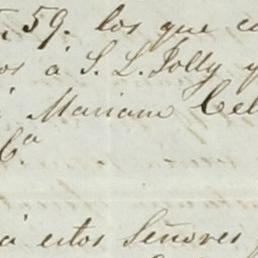 59. los que
á S. L. Jolly y
Mariano
Cª
á estos Señores